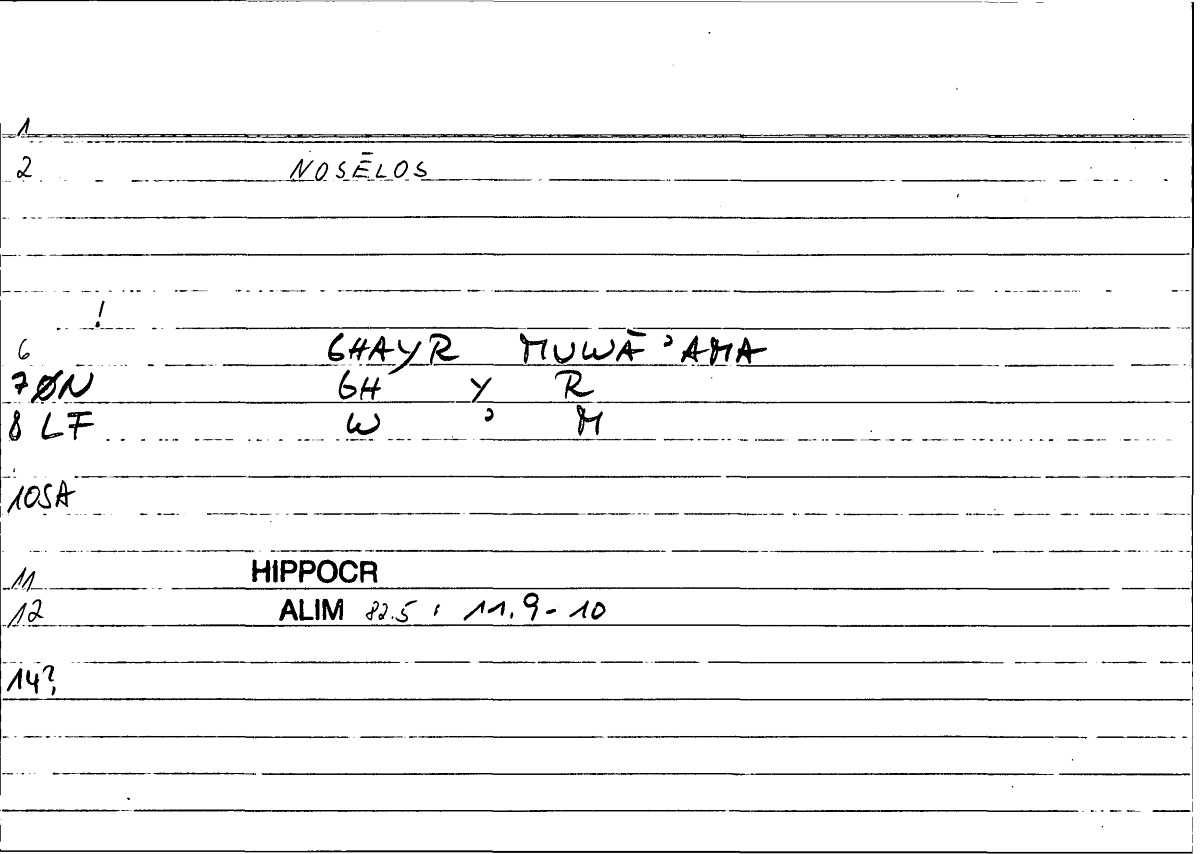 1
2 NOSĒLOS
!
6 GHAYR MUWĀʾAMA
7 ØN GH Y R
8 LF W ʾ M
10SA
11 HIPPOCR
12 ALIM 82.5 ; 11.9-10
14?